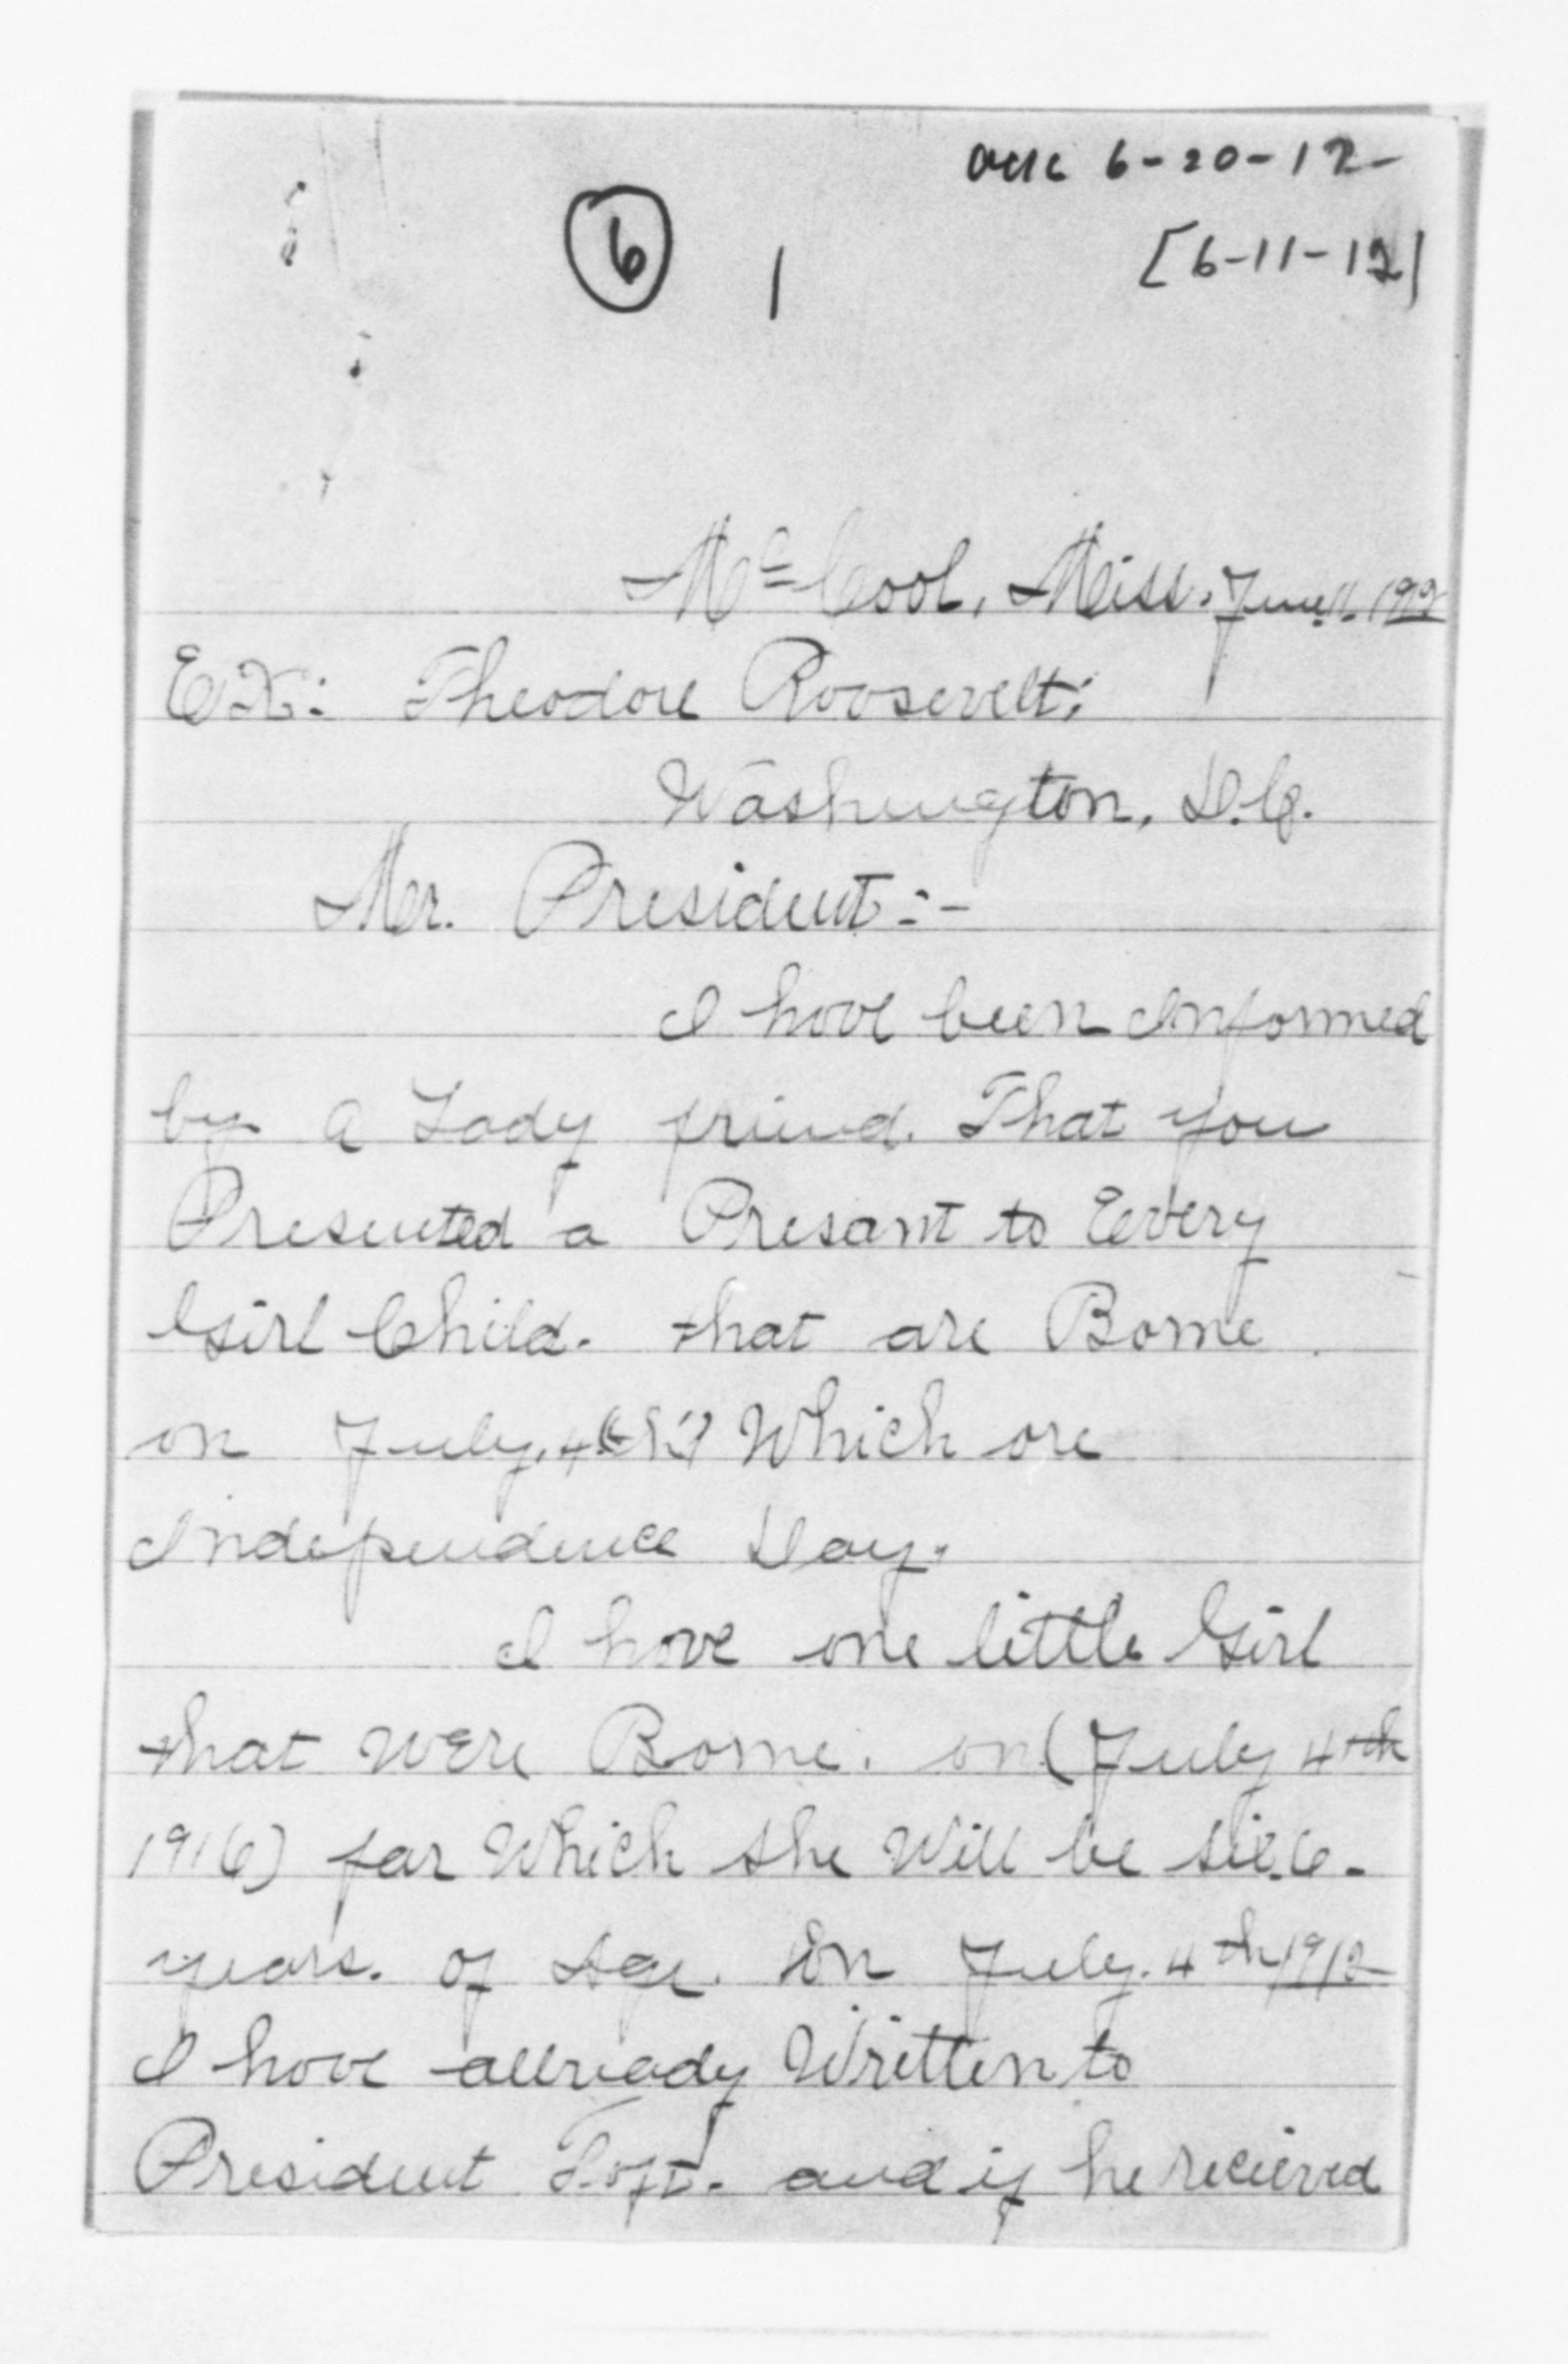 ack 6-20-12
6 1
[6-11-12]
Mc Cool, Miss. June 11. 1912
EX: Theodore Roosevelt;
Washington, D.C.
Mr. President:-
I have been Informed
by a Lady friend. That you
Presented a Presant to Every
Girl Child. that are Borne
on July, 4(th) Which are
Independence Day.
I have one little Girl
that were Borne. on (July 4th
1916) for Which she Will be six.6.
years. of Age. On July. 4th 1912
I have allready Written to
President Taft. and if he recieved